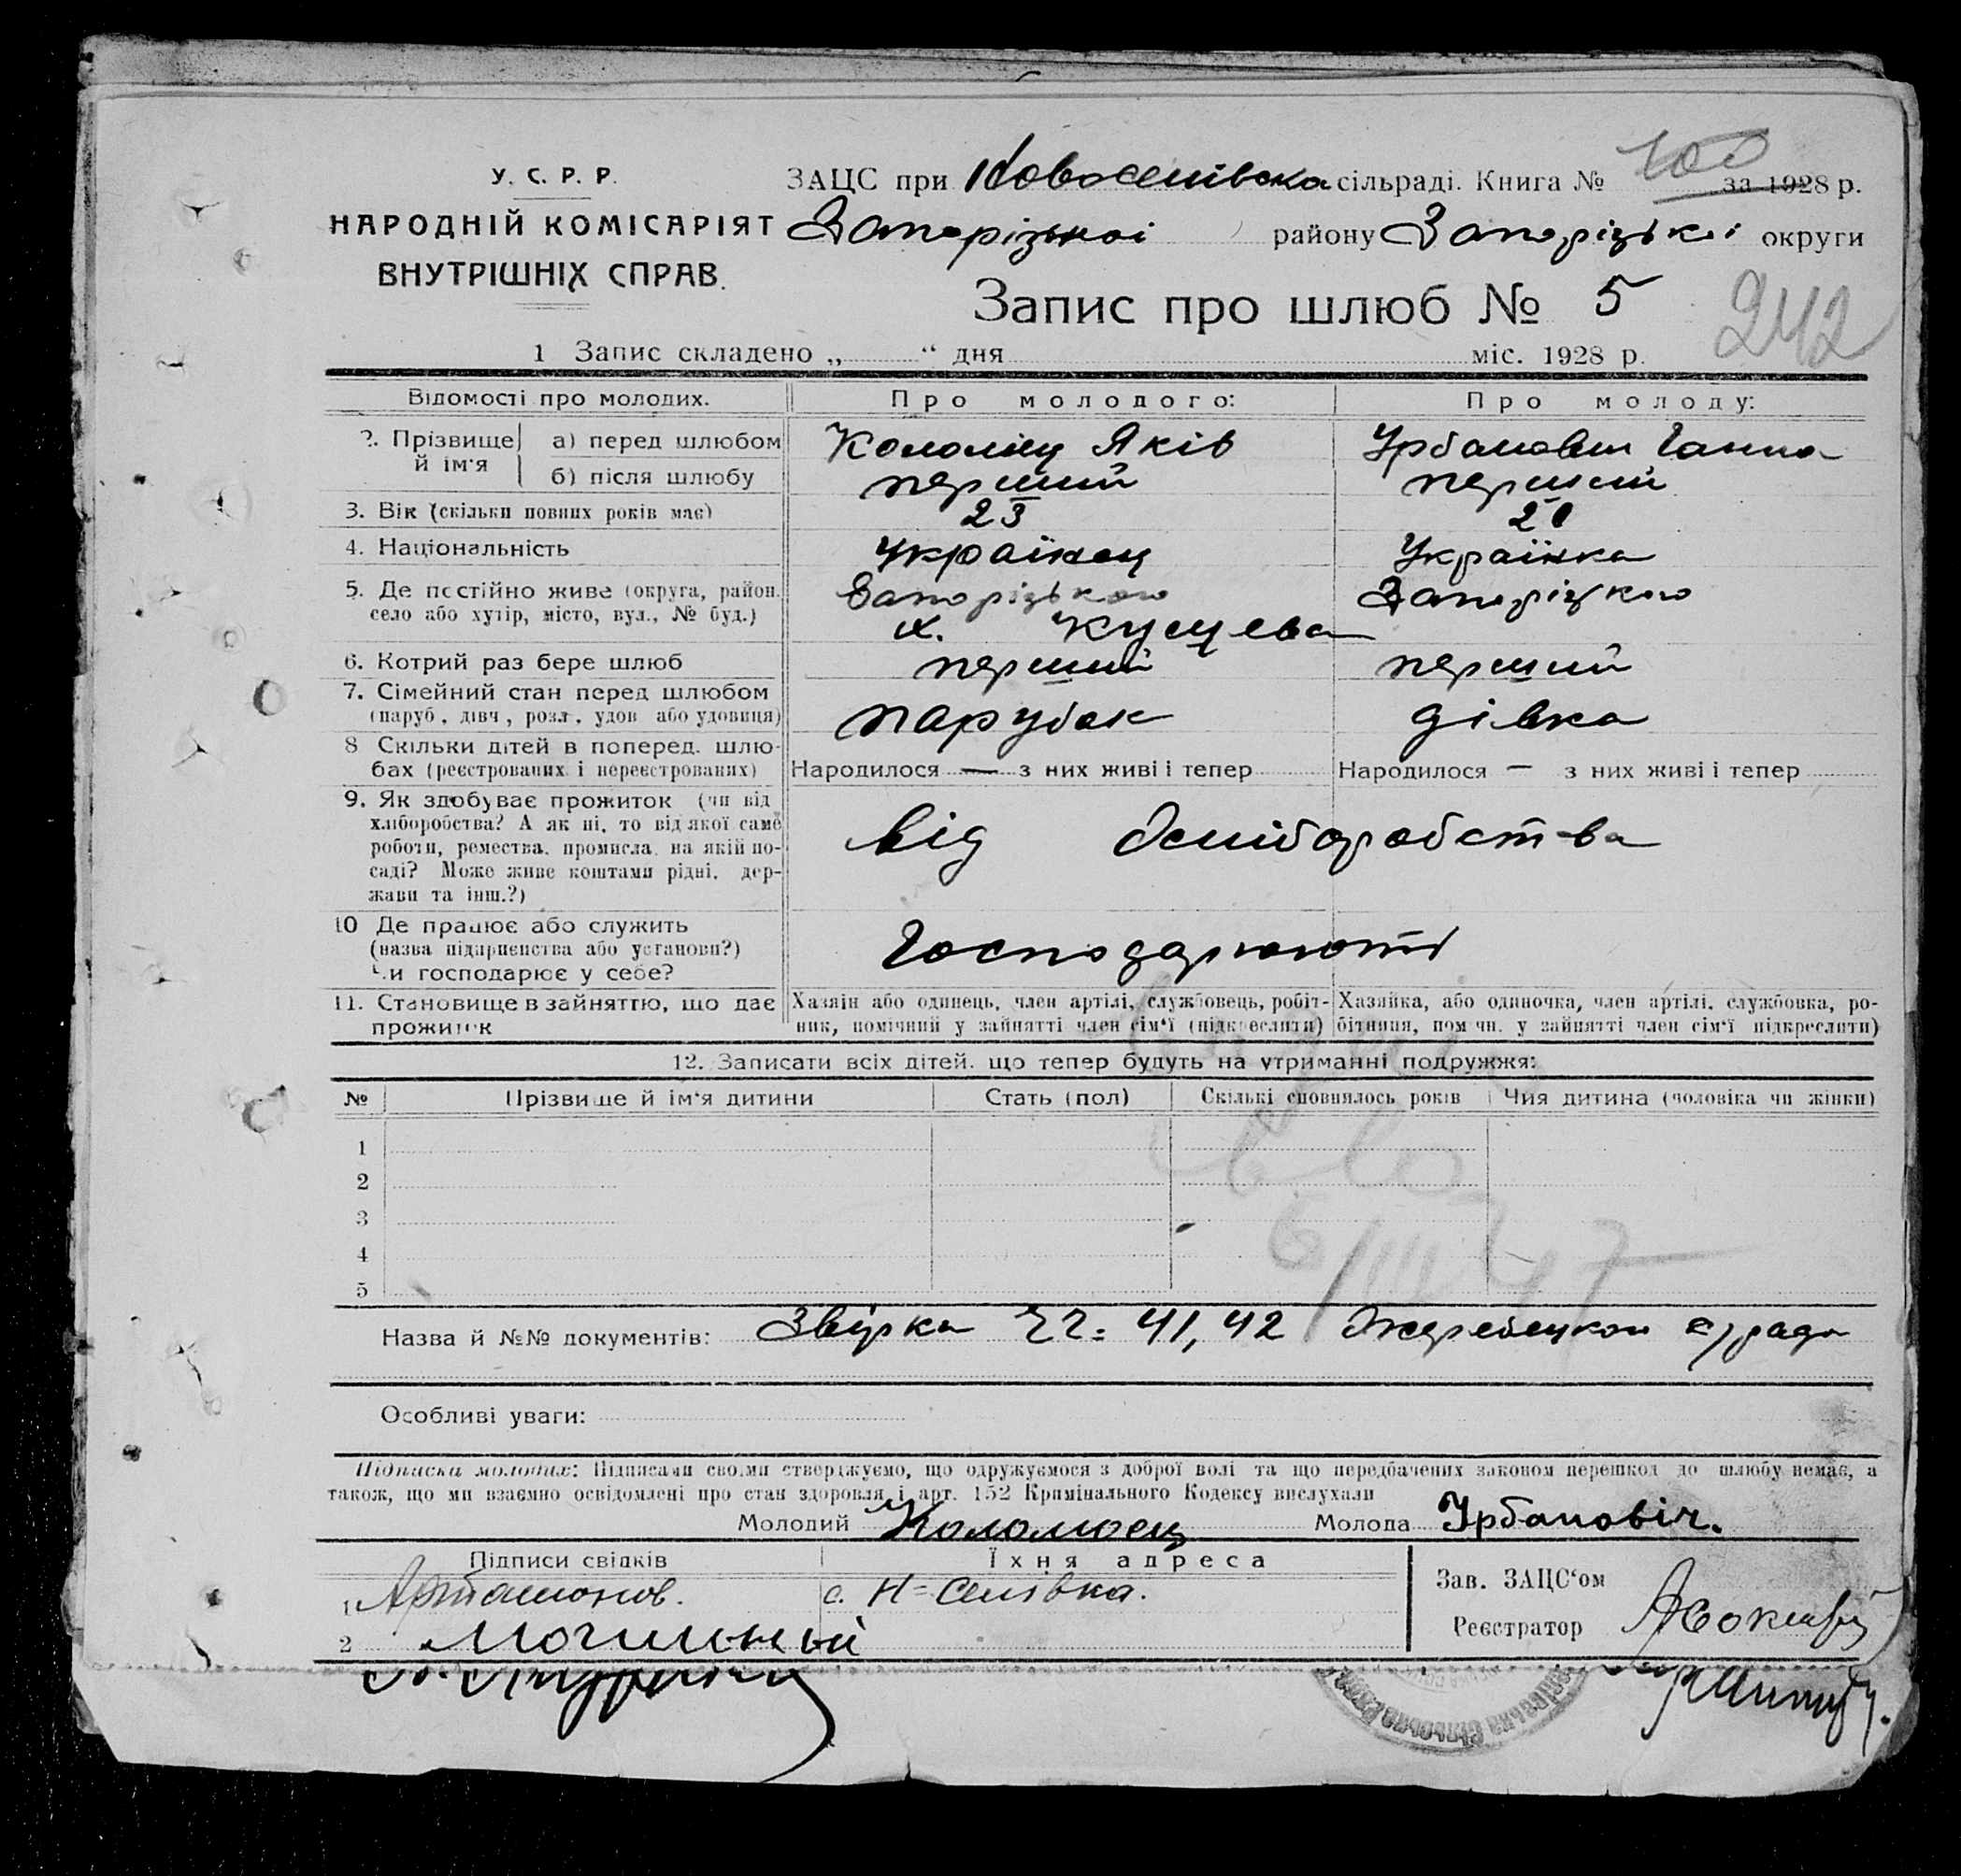 У. С. Р. Р.
НАРОДНІЙ КОМІСАРІЯТ
ВНУТРІШНІХ СПРАВ.
ЗАЦС при Новоселівска сільраді. Книга № 100 за 1928 р.
Запорізької району Запорізької округи
Запис про шлюб № 5
242
1 Запис складено „ “ дня міс. 1928 р.
Відомості про молодих. Про молодого: Про молоду:
2. Прізвище й ім'я а) перед шлюбом Коломієц Яків Урбанович Ганна
б) після шлюбу перший перший
3. Вік (скільки повних років має) 23 20
4. Національність Українец Українка
5. Де постійно живе (округа, район. село або хутір, місто, вул., № буд.) Запорізького Запоріжкого
х. Кущева
6. Котрий раз бере шлюб перший перший
7. Сімейний стан перед шлюбом (паруб., дівч., розл., удов або удовиця) парубок дівка
8 Скільки дітей в поперед. шлюбах (реєстрованих і нереєстрованих) Народилося — з них живі і тепер Народилося — з них живі і тепер
9. Як здобуває прожиток (чи від
хліборобства? А як ні, то від якої саме
роботи, ремества, промисла, на якій по-
саді? Може живе коштами рідні, дер-
жави та інш.?)
від хліборобства
10 Де працює або служить
(назва підприємства або установи?)
Чи господарює у себе?
Господарюють
11. Становище в зайняттю, що дає прожиток
Хазяїн або одинець, член артілі, службовець, робіт-
ник, помічний у зайнятті член сім'ї (підкреслити)
Хазяйка, або одиночка, член артілі, службовка, ро-
бітниця, пом чн. у зайнятті член сім'ї підкреслити)
12. Записати всіх дітей, що тепер будуть на утриманні подружжя:
№ Прізвище й ім'я дитини Стать (пол) Скількі сповнялось років Чия дитина (чоловіка чи жінки)
1
2
3
4
5
6/III 47
Назва й №№ документів: Звірка 41, 42 Жеребецкой с/рада
Особливі уваги:
Підписки молодих: Підписами своїми стверджуємо, що одружуємося з доброї волі та що передбачених законом перешкод до шлюбу немає, а
також, що ми взаємно освідомлені про стан здоровля і арт. 152 Кримінального Кодексу вислухали
Молодий Коломоец Молода Урбановіч.
Підписи свідків Їхня адреса
1 Артамонов. с. Н=Селівка.
2 Могильный
Зав. ЗАЦС'ом
Реєстратор